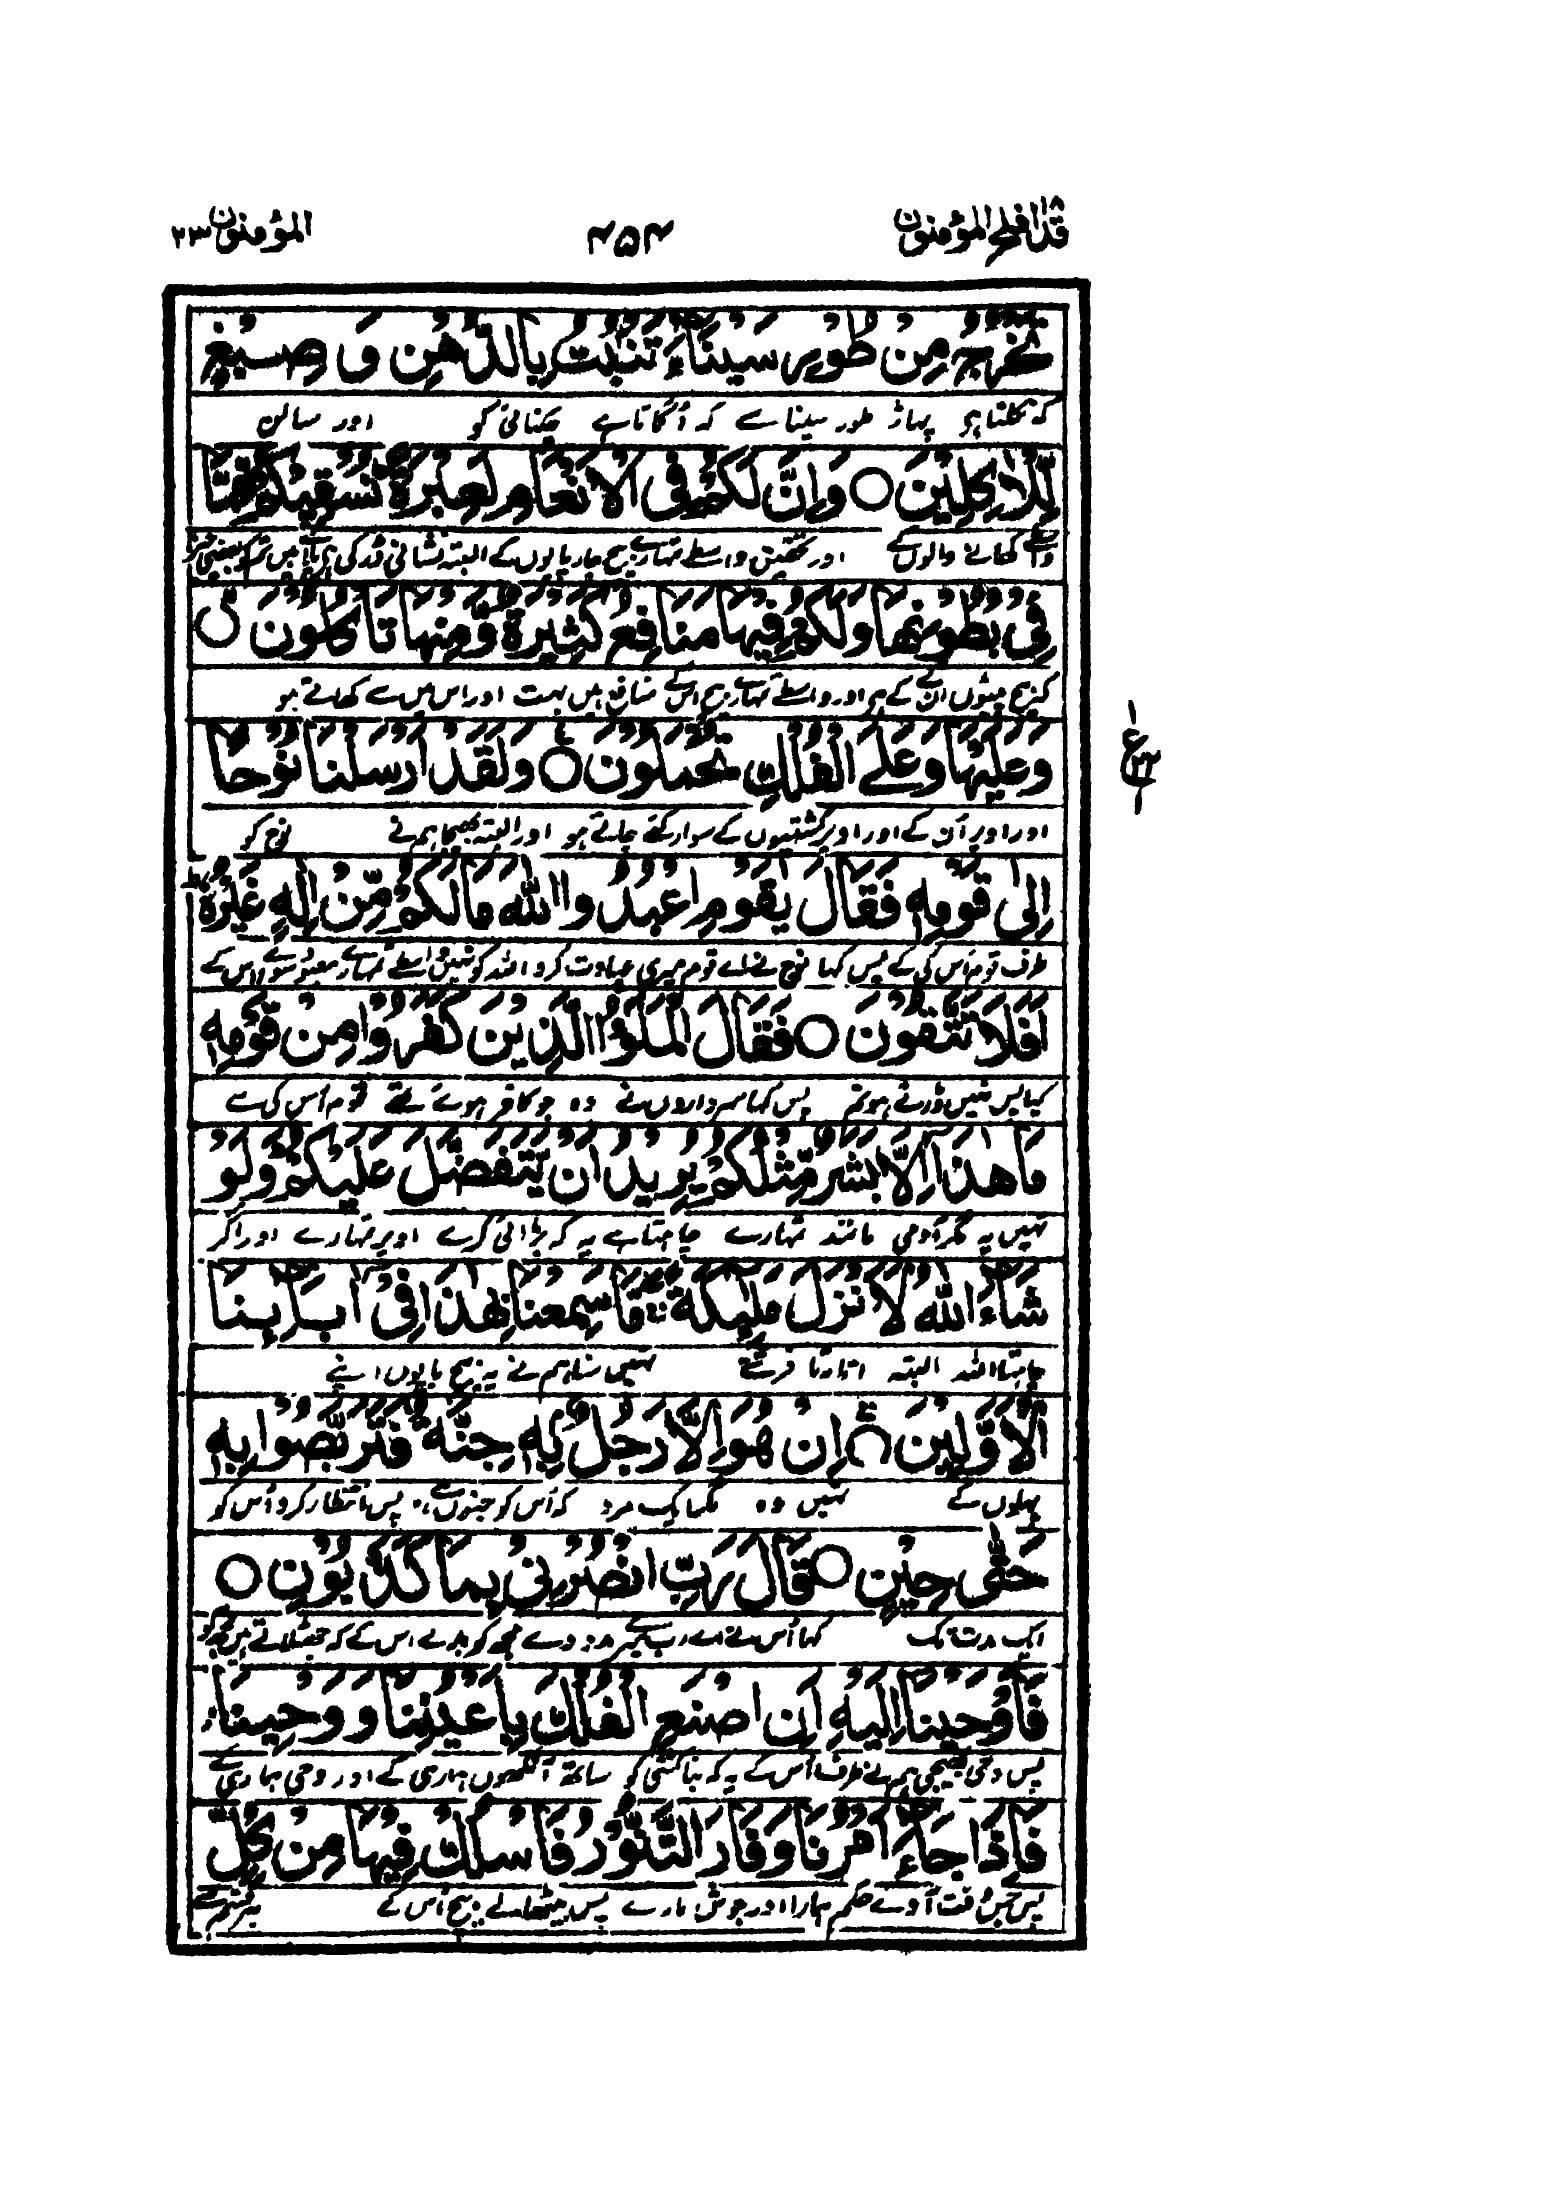 قد افلح المؤمنون ۴۵۴ المؤمنون ۲۳
تَخْرُجُ مِنْ طُوْرِ سَيْنَآءَ تَنْۢبُتُ بِالدُّهْنِ وَ صِبْغٍ
کہ نکلتا ہی پہاڑ طور سینا سے کہ اُگاتا ہے چکنائی کو اور سالن
لِّلْاٰكِلِيْنَ ○ وَاِنَّ لَكُمْ فِى الْاَنْعَامِ لَعِبْرَةً نُسْقِيْكُمْ مِّمَّا
واسطے کھانے والوں کے اور تحقیق واسطے تمہارے بیچ چارپایوں کے البتہ نشانی
فِىْ بُطُوْنِهَا وَلَكُمْ فِيْهَا مَنَافِعُ كَثِيْرَةٌ وَّمِنْهَا تَاْكُلُوْنَ ○
کہ بیچ پیٹوں ان کے ہی اور واسطے تمہارے بیچ اس کے منافع ہیں بہت اور اس میں سے کھاتے ہو
وَعَلَيْهَا وَعَلَى الْفُلْكِ تُحْمَلُوْنَ ○ وَلَقَدْ اَرْسَلْنَا نُوْحًا
اور اوپر اُن کے اور اوپر کشتیوں کے سوار کئے جاتے ہو اور البتہ بھیجا ہم نے نوح کو
اِلٰى قَوْمِهٖ فَقَالَ يٰقَوْمِ اعْبُدُوا اللّٰهَ مَا لَكُمْ مِّنْ اِلٰهٍ غَيْرُهٗ
طرف قوم اُس کی کے پس کہا نوح نے اے قوم میری عبادت کرو اللہ کو نہیں واسطے تمہارے معبود سوائے اس کے
اَفَلَا تَتَّقُوْنَ ○ فَقَالَ الْمَلَؤُا الَّذِيْنَ كَفَرُوْا مِنْ قَوْمِهٖ
کیا پس نہیں ڈرتے ہو تم پس کہا سرداروں نے وہ جو کافر ہوئے تھے قوم اُس کی سے
مَا هٰذَا اِلَّا بَشَرٌ مِّثْلُكُمْ يُرِيْدُ اَنْ يَّتَفَضَّلَ عَلَيْكُمْ وَلَوْ
نہیں یہ مگر آدمی مانند تمہارے چاہتا ہے یہ کہ بڑائی کرے اوپر تمہارے اور اگر
شَآءَ اللّٰهُ لَاَنْزَلَ مَلٰٓئِكَةً مَّا سَمِعْنَا بِهٰذَا فِىْٓ اٰبَآئِنَا
چاہتا اللہ البتہ اتارتا فرشتے نہیں سنا ہم نے یہ بیچ باپوں اپنے
الْاَوَّلِيْنَ ○ اِنْ هُوَ اِلَّا رَجُلٌۢ بِهٖ جِنَّةٌ فَتَرَبَّصُوْا بِهٖ
پہلوں کے نہیں وہ مگر ایک مرد کہ اُس کو جنون ہے پس انتظار کرو اُس کو
حَتّٰى حِيْنٍ ○ قَالَ رَبِّ انْصُرْنِىْ بِمَا كَذَّبُوْنِ ○
ایک مدت تک کہا اُس نے اے رب میرے مدد دے مجھ کو بدلے اس کے کہ جھٹلاتے ہیں مجھ کو
فَاَوْحَيْنَآ اِلَيْهِ اَنِ اصْنَعِ الْفُلْكَ بِاَعْيُنِنَا وَوَحْيِنَا
پس وحی بھیجی ہم نے طرف اُس کے یہ کہ بنا کشتی کو ساتھ آنکھوں ہماری کے اور وحی ہماری کے
فَاِذَا جَآءَ اَمْرُنَا وَفَارَ التَّنُّوْرُ فَاسْلُكْ فِيْهَا مِنْ كُلٍّ
پس جس وقت آوے حکم ہمارا اور جوش مارے پس بیٹھا لے بیچ اُس کے